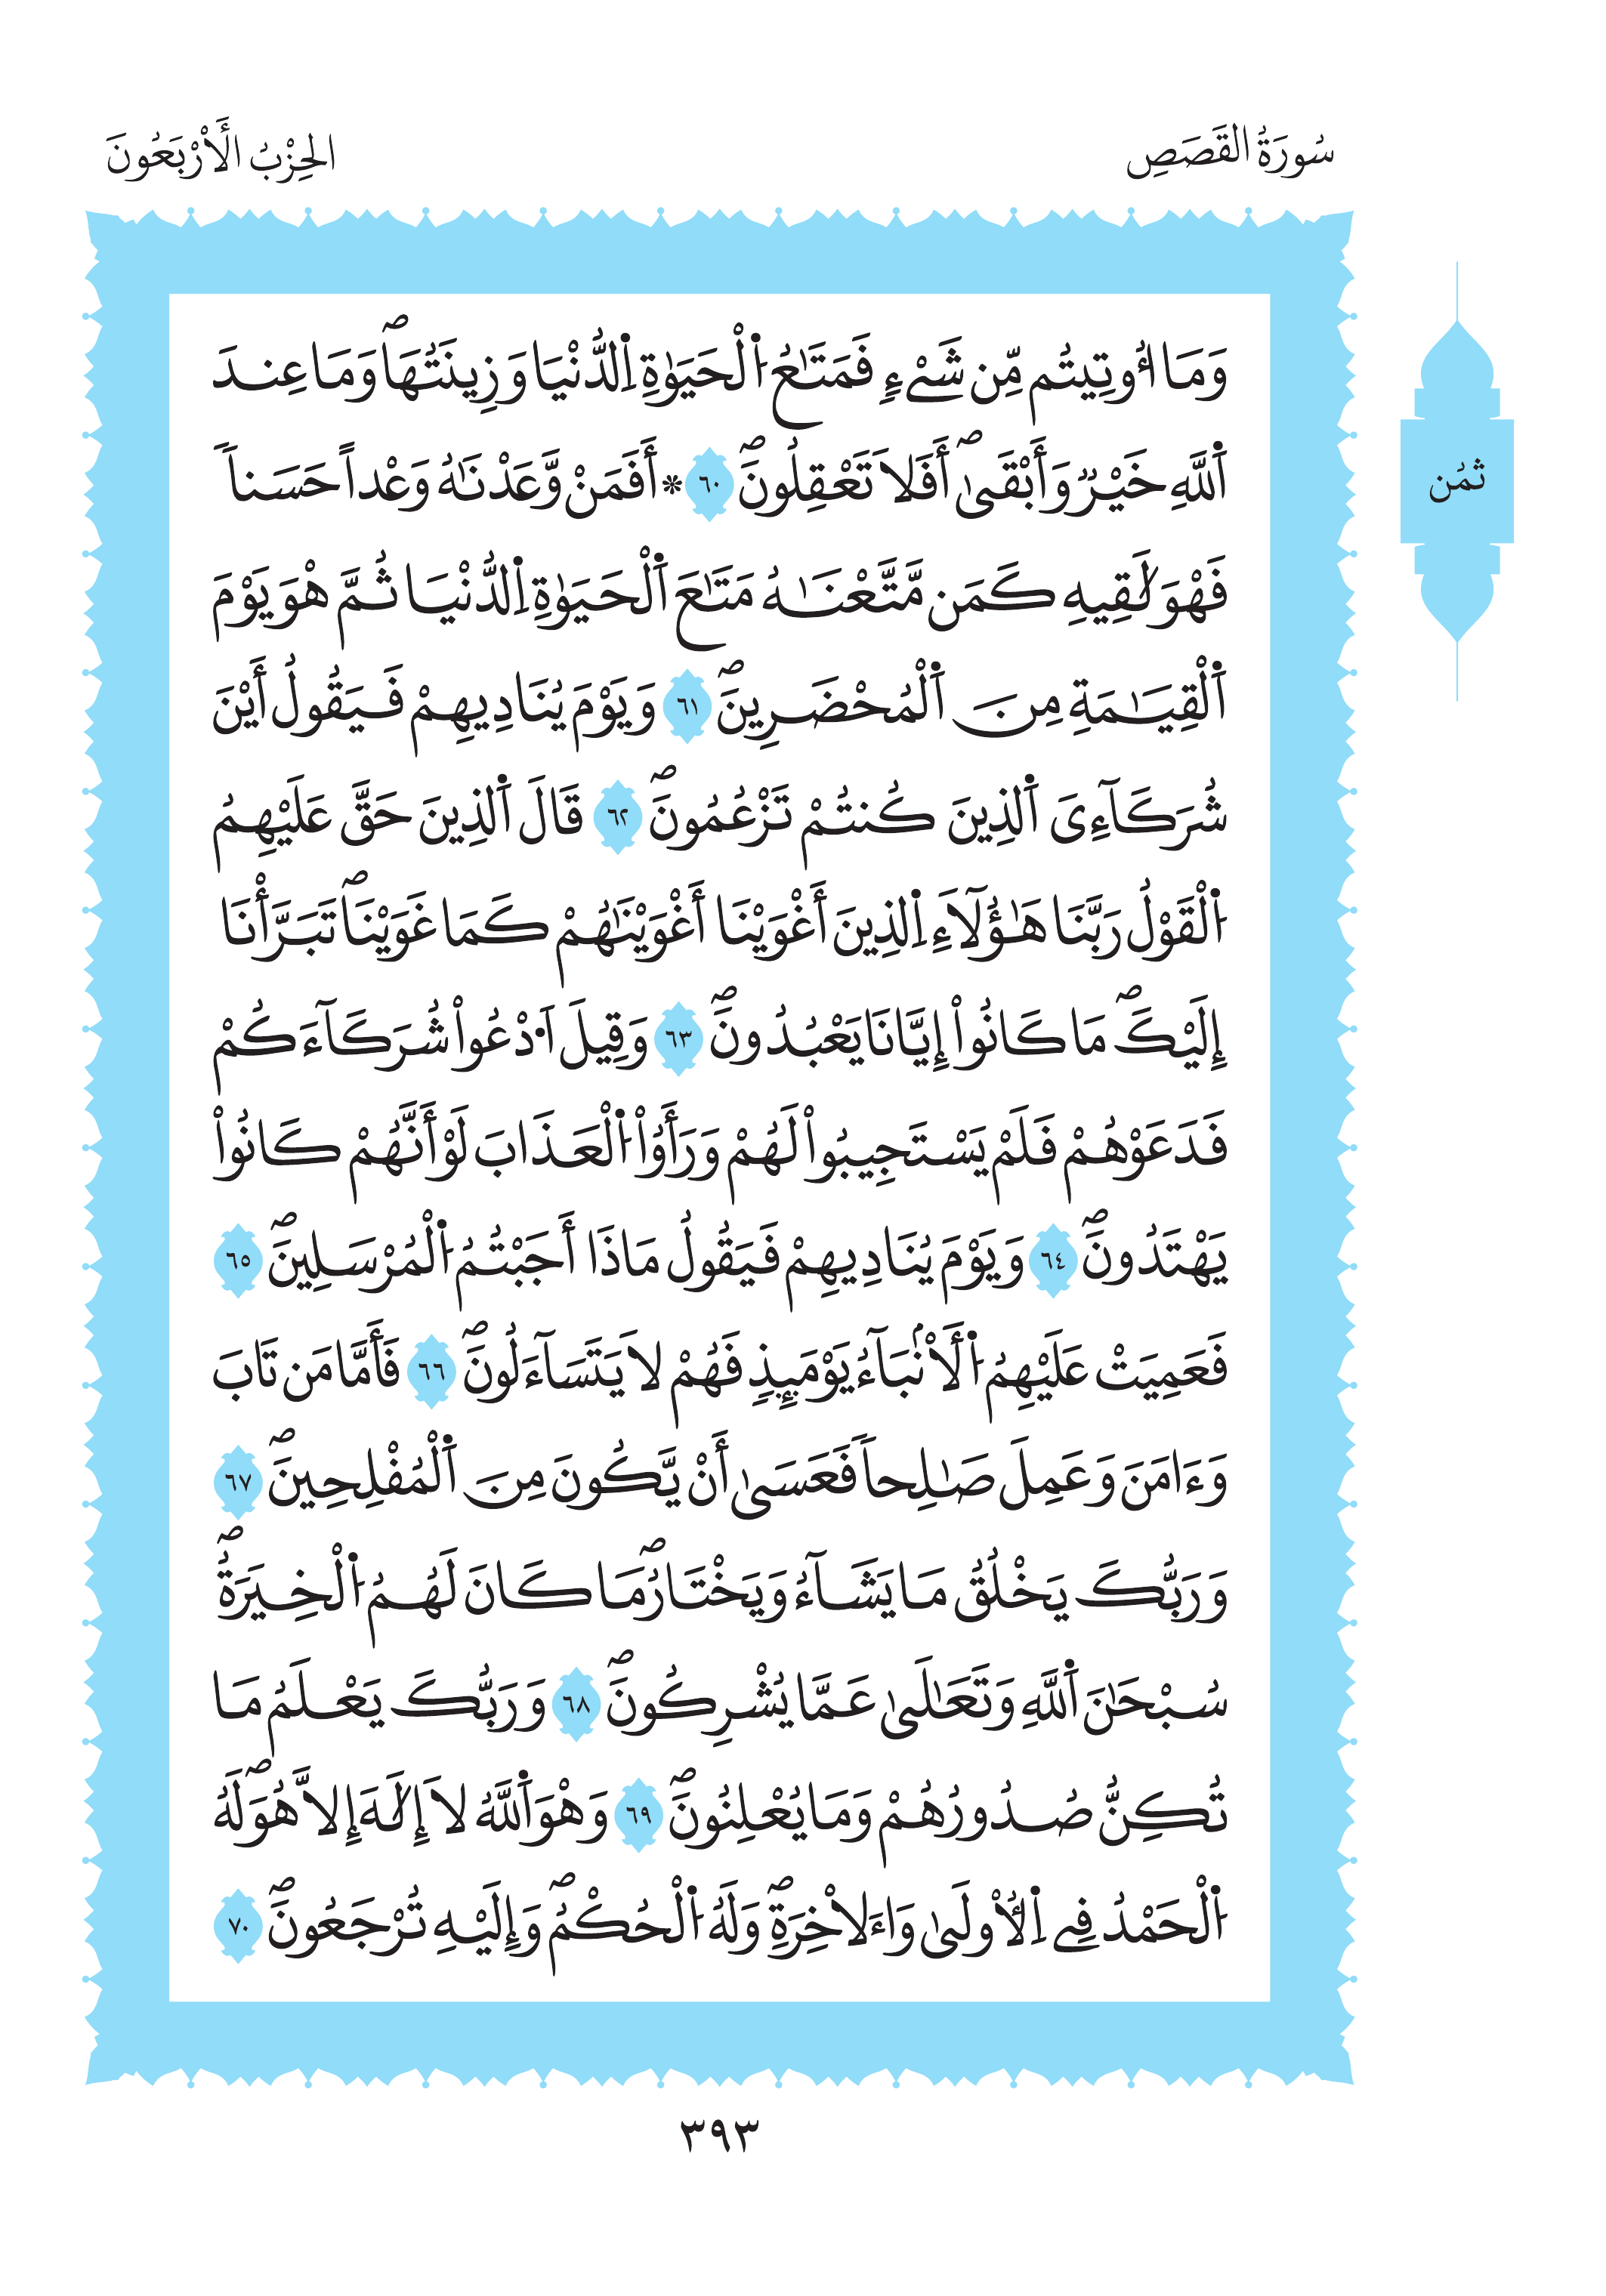 سُورَةُ القَصَصِ
الحِزْبُ الَأرْبَعُونَ
ثمُن
وَمَا أُوتِيتُم مِّن شَےْءٍ فَمَتَٰعُ اُ۬لْحَيَوٰةِ اِ۬لدُّنْيَا وَزِينَتُهَاۖ وَمَا عِندَ
اَ۬للَّهِ خَيْرٞ وَأَبْقَىٰۖ أَفَلَا تَعْقِلُونَۖ ٦٠ ۞ أَفَمَنْ وَّعَدْنَٰهُ وَعْداً حَسَناٗ
فَهْوَ لَٰقِيهِ كَمَن مَّتَّعْنَٰهُ مَتَٰعَ اَ۬لْحَيَوٰةِ اِ۬لدُّنْيَا ثُمَّ هْوَ يَوْمَ
اَ۬لْقِيَٰمَةِ مِنَ اَ۬لْمُحْضَرِينَۖ ٦١ وَيَوْمَ يُنَادِيهِمْ فَيَقُولُ أَيْنَ
شُرَكَآءِىَ اَ۬لذِينَ كُنتُمْ تَزْعُمُونَۖ ٦٢ قَالَ اَ۬لذِينَ حَقَّ عَلَيْهِمُ
اُ۬لْقَوْلُ رَبَّنَا هَٰؤُلَآءِ اِ۬لذِينَ أَغْوَيْنَا أَغْوَيْنَٰهُمْ كَمَا غَوَيْنَاۖ تَبَرَّأْنَا
إِلَيْكَۖ مَا كَانُواْ إِيَّانَا يَعْبُدُونَۖ ٦٣ وَقِيلَ اَ۟دْعُواْ شُرَكَآءَكُمْ
فَدَعَوْهُمْ فَلَمْ يَسْتَجِيبُواْ لَهُمْ وَرَأَوُاْ اُ۬لْعَذَابَ لَوْ أَنَّهُمْ كَانُواْ
يَهْتَدُونَۖ ٦٤ وَيَوْمَ يُنَادِيهِمْ فَيَقُولُ مَاذَا أَجَبْتُمُ اُ۬لْمُرْسَلِينَۖ ٦٥
فَعَمِيَتْ عَلَيْهِمُ اُ۬لَأنۢبَآءُ يَوْمَئِذٖ فَهُمْ لَا يَتَسَآءَلُونَۖ ٦٦ فَأَمَّا مَن تَابَ
وَءَامَنَ وَعَمِلَ صَٰلِحاٗ فَعَسَىٰ أَنْ يَّكُونَ مِنَ اَ۬لْمُفْلِحِينَۖ ٦٧
وَرَبُّكَ يَخْلُقُ مَا يَشَآءُ وَيَخْتَارُۖ مَا كَانَ لَهُمُ اُ۬لْخِيَرَةُۖ
سُبْحَٰنَ اَ۬للَّهِ وَتَعَٰلَىٰ عَمَّا يُشْرِكُونَۖ ٦٨ وَرَبُّكَ يَعْلَمُ مَا
تُكِنُّ صُدُورُهُمْ وَمَا يُعْلِنُونَۖ ٦٩ وَهْوَ اَ۬للَّهُ لَا إِلَٰهَ إِلَّا هُوَۖ لَهُ
اُ۬لْحَمْدُ فِے اِ۬لُأولَىٰ وَاءَلَاخِرَةِۖ وَلَهُ اُ۬لْحُكْمُۖ وَإِلَيْهِ تُرْجَعُونَۖ ٧٠
٣٩٣